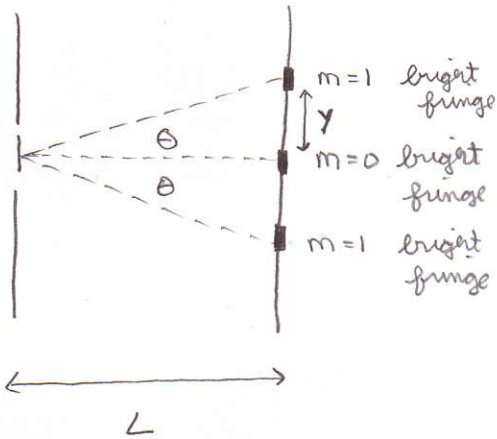 m=1 bright
fringe
y
θ
m=0 bright
fringe
θ
m=1 bright
fringe
L